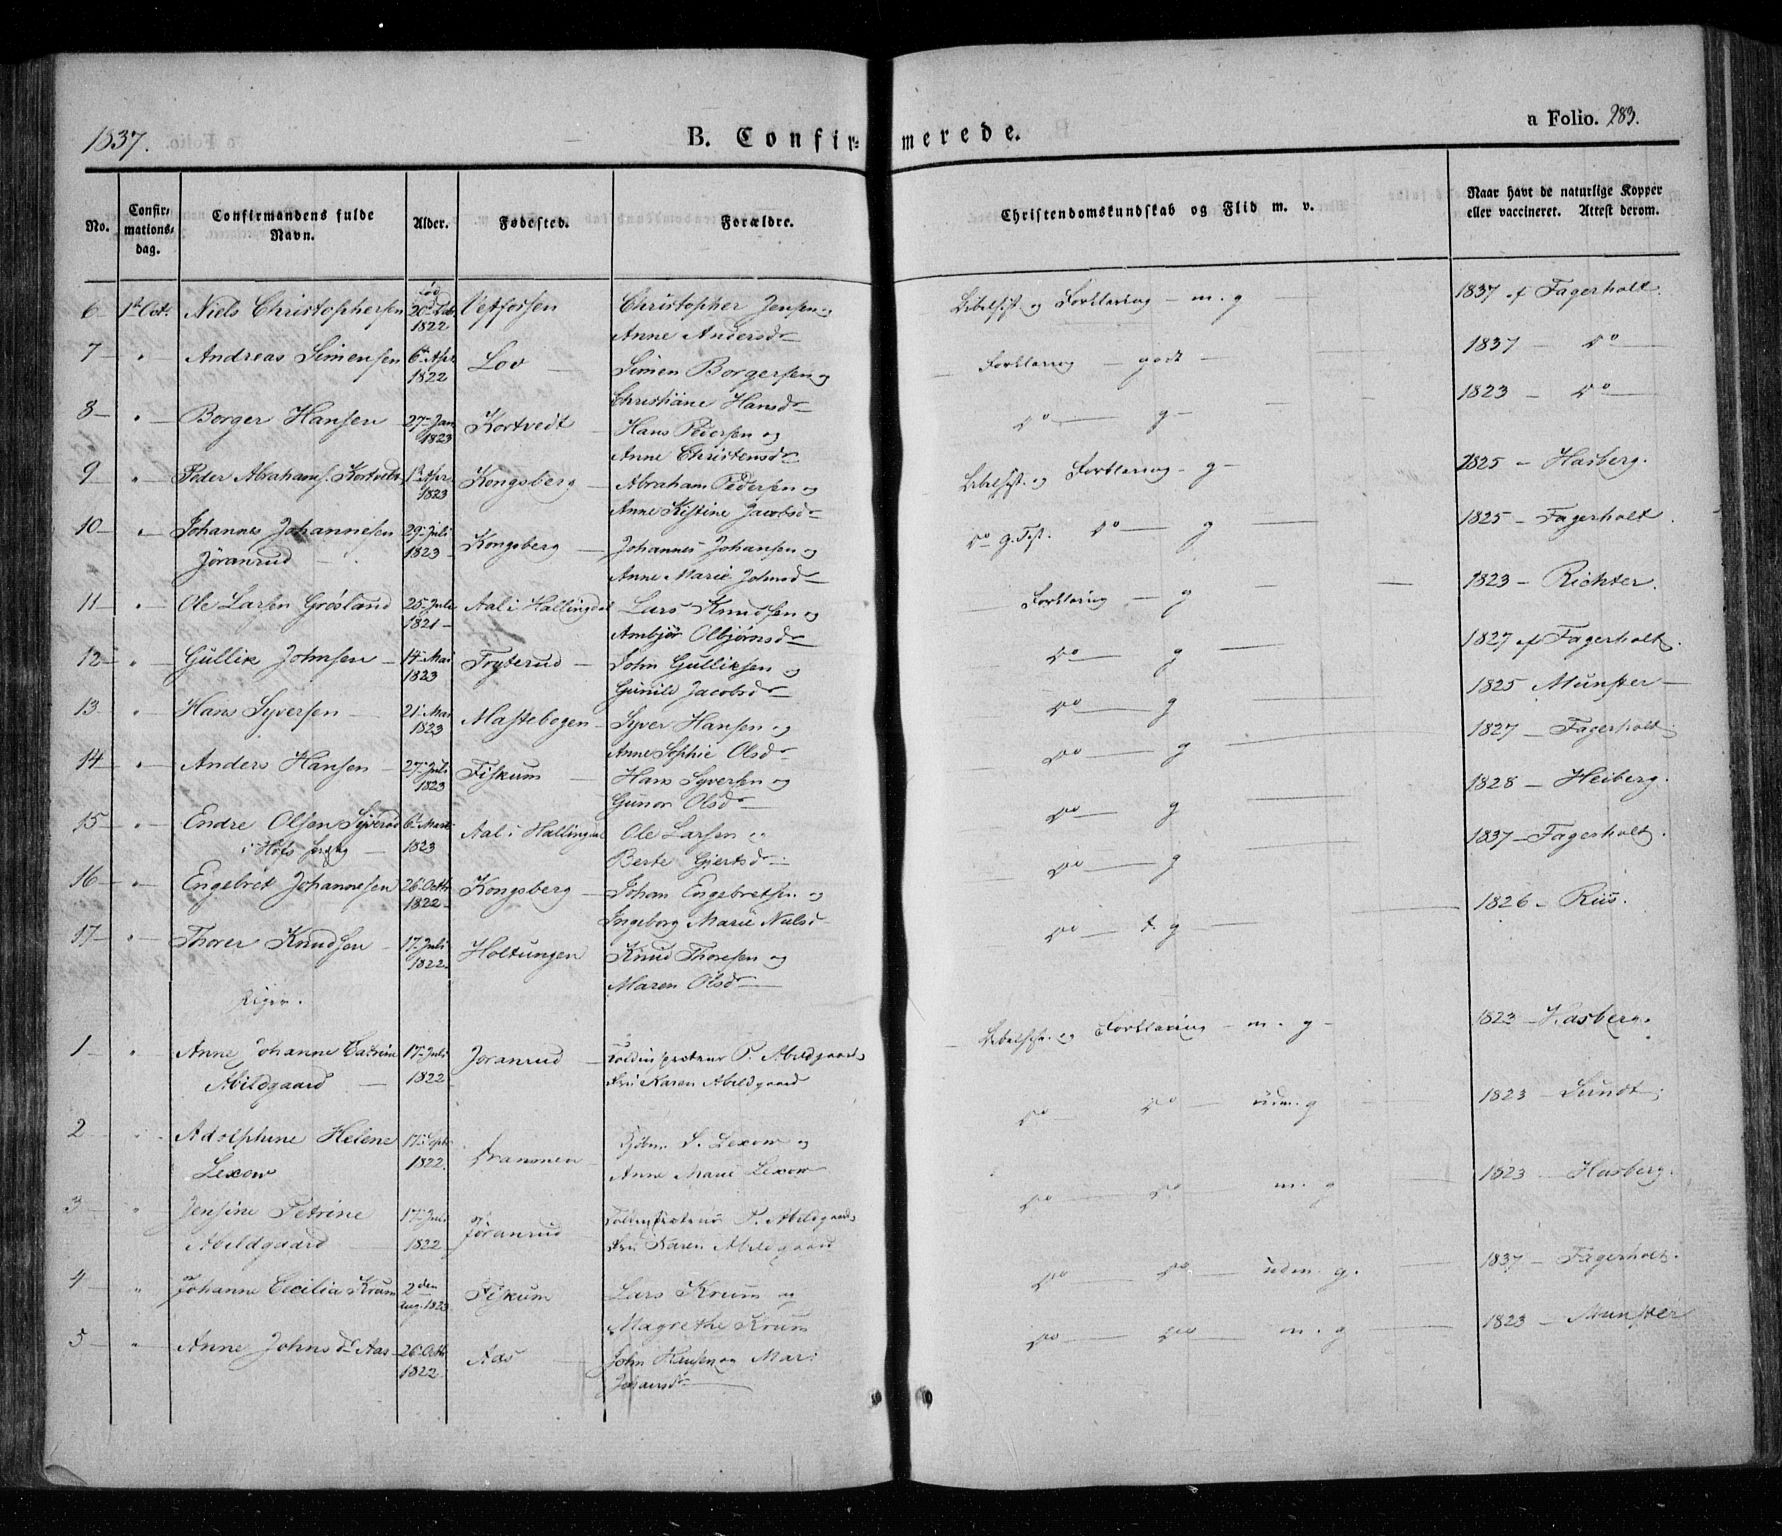 1837.
B. Confir-merede.
a Folio. 283.
No.
Confir-
mations-
dag.
Confirmandens fulde
Navn.
Alder.
Fødested.
Forældre.
Christendomskundskab og Flid m. v.
Naar havt de naturlige Kopper
eller vaccineret. Attest derom.
6 1st Oct. Niels Christophersen 1822 Vestfossen Christopher Jensen og Forklaring - m. g 1837 af Fagerholt.
Anne Andersd
7 " Andreas Simensen 6t Apr. 1822 Lov Simen Borgersen og Forklaring - godt - 1837 - do
Christiane Hansd
8 " Borger Hansen 27 Jan 1823 Kortvedt Hans Pedersen og do g - 1823 - do
Anne Christensd
9 " Peder Abrahams. Kortvedt 1st Apr. 1823 Kongsberg Abraham Pedersen og Forklaring - g - 1825 - Hasberg.
Anne Kistine Jacobsd
10 " Johannes Johannesen 29 Juli 1823 Kongsberg Johannes Johansen og do g. do g 1825 - Fagerholt.
Jøranrud Anne Marie Johnsd
11 " Ole Larsen Grøsland 25 Juli 1821 Aal i Hallingdal Lars Knudsen og Forklaring - g 1823 - Richter.
Ambjør Olbjørnsd
12 " Gullik Johnsen 14 Mai 1823 Fryterud John Gulliksen og do g 1827 af Fagerholt.
Gunild Jacobsd
13 " Hans Syversen 21 Mai 1823 Mastebogen Syver Hansen og do g 1825 Munster
Anne Sophie Olsd
14 " Anders Hansen 27 Juli 1823 Fiskum Hans Syversen og do g 1827 - Fagerholt
Gunor Olsd
15 " Endre Olsen 6 Marts 1823 Aal i Hallingdal Ole Larsen og do g 1828 - Heiberg.
Berte Gjertsd
16 " Engebret Johannesen 26 Octb. 1822 Kongsberg Johan Engebretsen og do g 1837 - Fagerholt.
Ingeborg Marie Nielsd
17 " Thorer Knudsen 17 Juli 1822 Holtungen Knud Thoresen og do t. g 1826 - Riis.
Maren Olsd
Piger.
1 " Anne Johanne Catrine 17 Juli 1822 Joranrud P. Abildgaard Forklaring - m. g - 1823 - Hasberg.
Abildgaard Karen Abildgaard
2 " Adolphine Helene 17 Sept. 1822 Drammen S. Lexow og do do udm. g 1823 - Lundt
Lexow Anne Marie Lexow
3 " Jensine Petrine 17 Juli 1822 Jøranrud P. Abildgaard do do m. g 1823 - Hasberg.
Abildgaard Karen Abildgaard
4 " Johanne Cecilia Krum 2den Aug. 1823 Fiskum Lars Krum og do do udm. g. 1837 - Fagerholt.
Magrethe Krum
5 " Anne Johnsd Aas 26 Octb 1822 Aas John og Mari do do m. g 1823 - Munster
Johansd